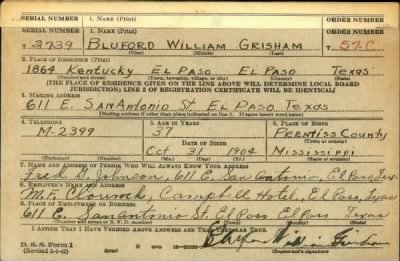 SERIAL NUMBER 1. NAME (Print) ORDER NUMBER
SERIAL NUMBER 1. NAME (Print) ORDER NUMBER
T 2739 BLUFORD WILLIAM GRISHAM T 57.C
(First) (Middle) (Last)
2. PLACE OF RESIDENCE (Print)
1864 Kentucky EL PASO EL PASO TEXAS
(Number and street) (Town, township, village, or city) (County) (State)
[THE PLACE OF RESIDENCE GIVEN ON THE LINE ABOVE WILL DETERMINE LOCAL BOARD
JURISDICTION; LINE 2 OF REGISTRATION CERTIFICATE WILL BE IDENTICAL]
3. MAILING ADDRESS
611 E. SAN Antonio St EL PASO TEXAS
[Mailing address if other than place indicated on line 2. If same insert word same]
4. TELEPHONE 5. AGE IN YEARS 6. PLACE OF BIRTH
M-2399 37 PRENTISS COUNTY
DATE OF BIRTH (Town or county)
Oct 31 1904 Mississippi
(Mo.) (Day) (Yr.) (State or country)
7. NAME AND ADDRESS OF PERSON WHO WILL ALWAYS KNOW YOUR ADDRESS
Fred G. Johnson, 611 E. San Antonio, El Paso, Tex
8. EMPLOYER'S NAME AND ADDRESS
M.F. Campbell Hotel, El Paso, Texas
9. PLACE OF EMPLOYMENT OR BUSINESS
611 E. San Antonio St. El Paso El Paso Texas
(Number and street or R. F. D. number) (Town) (County) (State)
I AFFIRM THAT I HAVE VERIFIED ABOVE ANSWERS AND THAT THEY ARE TRUE.
D. S. S. Form 1
(Revised 1-1-42) (over) Bluford William Grisham
(Registrant's signature)